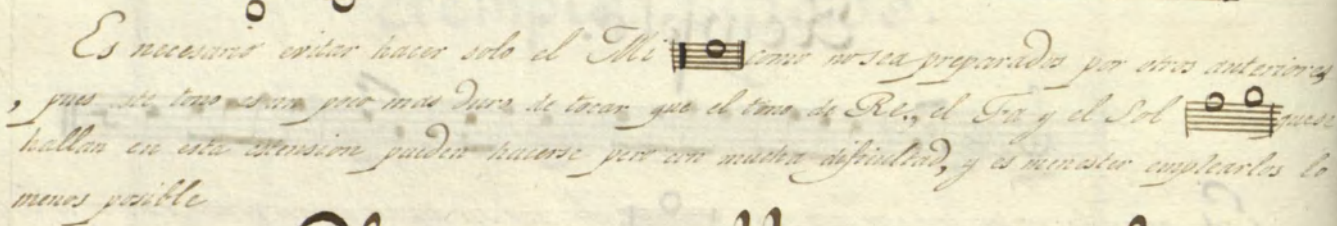 Es necesario evitar hacer solo el Mi como no sea preparados por otros anteriores
, pues este tono es un poco mas duro de tocar que el tono de Re., el Fa y el Sol que se
hallan en esta estension pueden hacerse pero con mucha dificultad, y es menester emplearlos lo
menos posible